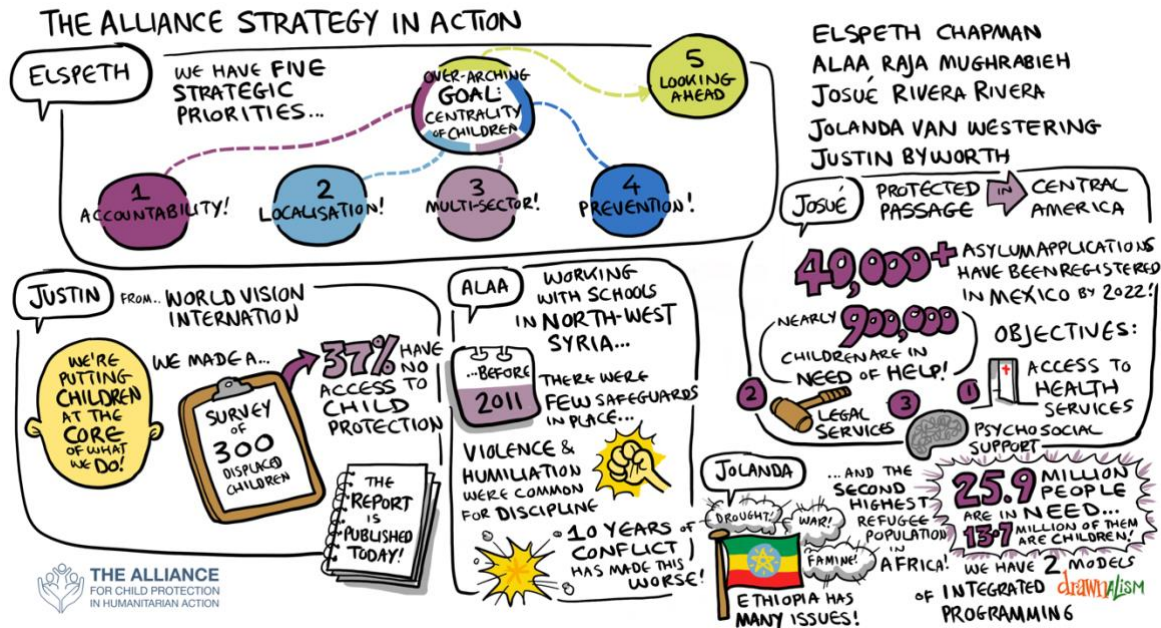 THE ALLIANCE STRATEGY IN ACTION
ELSPETH
WE HAVE FIVE
STRATEGIC
PRIORITIES...
OVER-ARCHING
GOAL:
CENTRALITY
OF CHILDREN
5
LOOKING
AHEAD
1
ACCOUNTABILITY!
2
LOCALISATION!
3
MULTI-SECTOR!
4
PREVENTION!
ELSPETH CHAPMAN
ALAA RAJA MUGHRABIEH
JOSUÉ RIVERA RIVERA
JOLANDA VAN WESTERING
JUSTIN BYWORTH
JUSTIN
FROM... WORLD VISION
INTERNATION
WE'RE
PUTTING
CHILDREN
AT THE
CORE
OF WHAT
WE DO!
WE MADE A...
SURVEY
OF
300
DISPLACED
CHILDREN
37% HAVE
NO
ACCESS TO
CHILD
PROTECTION
THE
REPORT
IS
PUBLISHED
TODAY!
ALAA
WORKING
WITH SCHOOLS
IN NORTH-WEST
SYRIA...
...BEFORE
2011
THERE WERE
FEW SAFEGUARDS
IN PLACE...
VIOLENCE &
HUMILIATION
WERE COMMON
FOR DISCIPLINE
10 YEARS OF
CONFLICT
HAS MADE THIS
WORSE!
JOSUÉ
PROTECTED
PASSAGE
IN
CENTRAL
AMERICA
40,000+
ASYLUM APPLICATIONS
HAVE BEEN REGISTERED
IN MEXICO BY 2022!
NEARLY
900,000
CHILDREN ARE IN
NEED OF HELP!
OBJECTIVES:
1
ACCESS TO
HEALTH
SERVICES
2
LEGAL
SERVICES
3
PSYCHOSOCIAL
SUPPORT
JOLANDA
DROUGHT!
WAR!
FAMINE!
ETHIOPIA HAS
MANY ISSUES!
...AND THE
SECOND
HIGHEST
REFUGEE
POPULATION
IN
AFRICA!
25.9 MILLION
PEOPLE
ARE IN NEED...
13.7 MILLION OF THEM
ARE CHILDREN!
WE HAVE 2 MODELS
OF INTEGRATED
PROGRAMMING
drawnALISM
THE ALLIANCE
FOR CHILD PROTECTION
IN HUMANITARIAN ACTION